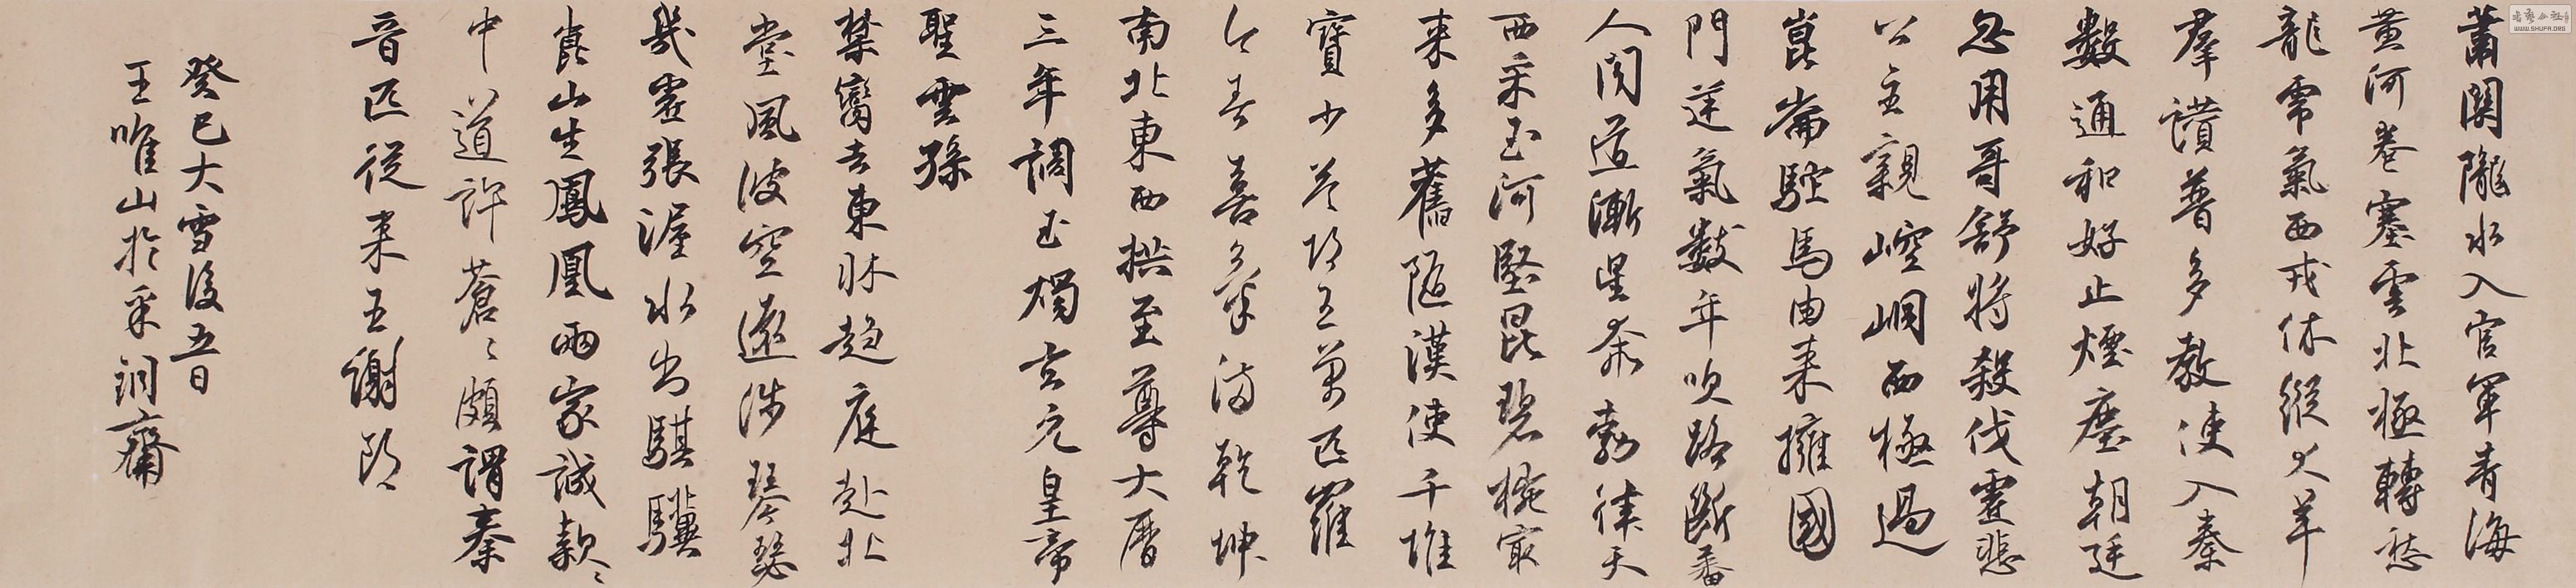 蕭關隴水入官軍青海
黃河卷塞雲北極轉愁
龍虎氣西戎休縱犬羊
羣讃普多教使入秦
數通和好止煙塵朝廷
忽用哥舒將殺伐虛悲
公主親崆峒西極過
崑崙駝馬由來擁國
門逆氣數年吹路斷蕃
人聞道漸星奔勃律天
西采玉河堅昆碧椀最
來多舊隨漢使千堆
寶少答胡王萬匹羅
今春喜氣滿乾坤
南北東西拱至尊大曆
三年調玉燭玄元皇帝
聖雲孫
禁臠去東牀趨庭赴北
堂風波空遠涉琴瑟
幾虛張渥水出騏驥
崑山生鳳凰兩家誠款々
中道許蒼々頗謂秦
晉匹從來王謝郎
癸巳大雪後五日
王唯山於采銅齋
WWW.SHUFA.ORG